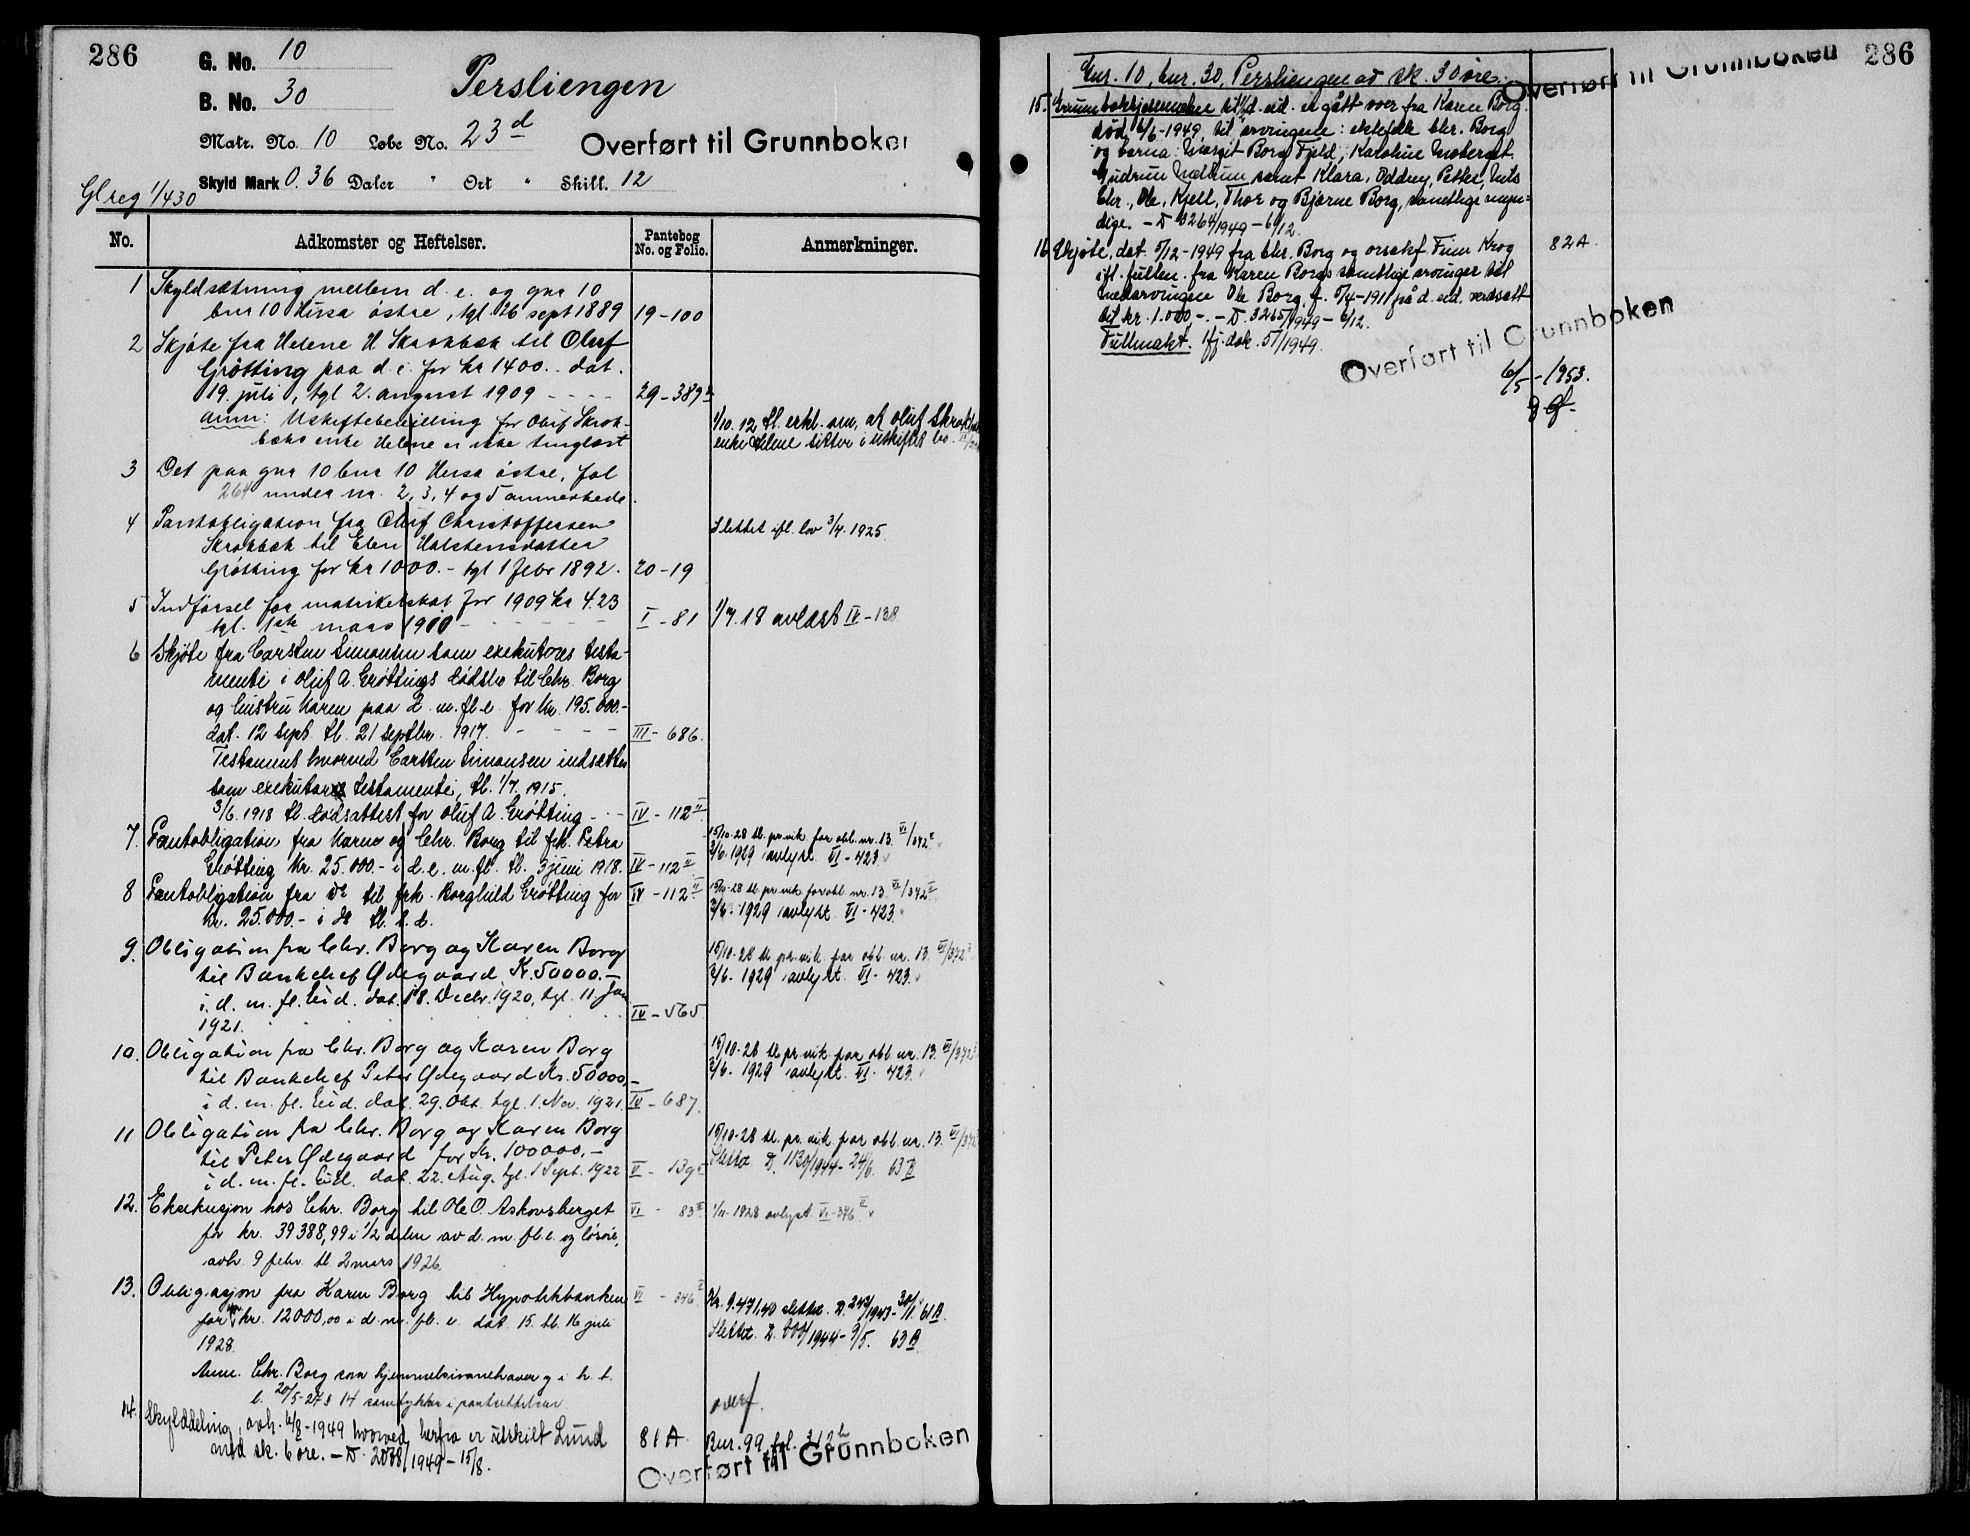 286
G. No. 10
B. No. 30
Persliengen
Matr. No. 10 Løbe No. 23 d
Overført til Grunnboken
Skyld Mark 0.36 Daler " Ort " Skill. 12
Gl reg 1/430
No. Adkomster og Heftelser. Pantebog No. og Folio. Anmerkninger.
1 Skyldsætning mellem d. e. og gnr 10
bnr 10 Hersa østre, tgl. 26 sept 1889 19-100
2 Skjøte fra Helene H Skrokbæk til Oluf
Grøtting paa d. e. for kr 1400.- dat.
19. juli, tgl 2. august 1909 - - - 29-389
anm: Uskiftebevilling for Oluf Skrok-
bæks enke Helene er ikke tinglæst
1/10. 12 tl. erkl. om, at Oluf Skrokbæks
enke Helene sitter i uskiftet bo.
3 Det paa gnr 10 bnr 10 Hersa østre, fol
264 under nr. 2, 3, 4 og 5 anmerkede.
4 Pantobligation fra Oluf Christoffersen
Skrokbæk til Elen Halstensdatter
Grøtting for kr 1000.- tgl 1 febr 1892. 20-19
Slettet ifl. lov 3/4. 1925.
5 Indførsel for matrikelskat for 1909 kr 4.23
tgl. 1ste mars 1910 - - - - - I-81 1/7. 18 avlæst IV-138
6 Skjøte fra Carsten Simonsen som exekutores testa-
menti i Oluf A. Grøttings dødsbo til Chr. Borg
og hustru Karen paa d. m. fl. e. for kr. 195.000.-
dat. 12 sept. tl. 21 septbr. 1917. - - - - III-686.
Testament hvorved Carsten Simonsen indsættes
som exekutor testamenti, tl. 1/7. 1915.
3/6. 1918 tl. dødsattest for Oluf A. Grøtting - - IV-112 II
7. Pantobligation fra Karen og Chr. Borg til frk. Petra
Grøtting kr. 25.000.- i d. e. m. fl. tl. 3 juni 1918. IV-112 II
15/10-28 tl. pr. vik. for obl. nr. 13. VI/342 II
3/6. 1929 avlyst. VI-423.
8 Pantobligation fra do til frk. Borghild Grøtting for
kr. 25.000.- i do tl. s. d. IV-112 II
15/10-28 tl. pr. vik. for obl. nr. 13. VI/342 II
3/6. 1929 avlyst. VI-423.
9. Obligation fra Chr. Borg og Karen Borg
til Bankchef Ødegaard Kr. 50000.-
i. d. m. fl. Eid. dat. 18. Decbr. 1920, tgl. 11 Jan
1921. IV-565
15/10-28 tl. pr. vik. for obl. nr. 13. VI/342
3/6. 1929 avlyst. VI-423.
10. Obligation fra Chr. Borg og Karen Borg
til Bankchef Peter Ødegaard Kr. 50000,-
i d. m. fl. Eid. dat. 29. Okt. tgl. 1. Nov. 1921. IV-687.
15/10-28 tl. pr. vik. for obl. nr. 13. VI/342
3/6. 1929 avlyst. VI-423.
11 Obligation fra Chr. Borg og Karen Borg
til Peter Ødegaard for Kr. 100000,-
i d. m. fl. Eid. dat. 22. Aug. tgl. 1 Sept. 1922 V-139
15/10-28 tl. pr. vik. for obl. nr. 13. VI/342
Slettet D. 1130/1944-24/6. 63 B
12. Eksekusjon hos Chr. Borg til Ole O. Askovsberget
for kr. 39388,99 i 1/2 delen av d. m. fl. e. og løsøre,
avh. 9 febr. tl. 2 mars 1926. VI-83 II
1/11-1928 avlyst VI-346 II
13. Obligasjon fra Karen Borg til Hypotekbanken
for kr. 12000,00 i d. m. fl. e. dat. 15. tl. 16 juli
1928. VI-346
Kr. 9.471,40 slettet. D. 242/1943-30/11 61 B.
Slettet. D. 808/1944-9/5. 63 B
Anm. Chr. Borg som hjemmelsinnehaver g i h. t.
l. 20/5-27 § 14 samtykker i pantsettelsen
overf.
14. Skylddeling, avh. 6/8-1949 hvorved herfra er utskilt Lund
med sk. 6 øre. - D. 2078/1949-15/8. 81 A Bnr. 99, fol. 312 b
Overført til Grunnboken
286
Gnr. 10, bnr. 30, Persliengene av sk. 30 øre.
Overført til Grunnboken
15. Grunnbokhjemmelen til d. eid. er gått over fra Karen Borg
død 6/6-1949, til arvingene: ektefelle Chr. Borg
og barna: Margit Borg Fjeld, Karoline Moberget
Gudrun Mælum samt Klara, Oddny, Petter, Nils
Chr., Ole, Kjell, Thor og Bjarne Borg, samtlige myn-
dige. - D 3264/1949-6/12.
16 Skjøte, dat. 5/12-1949 fra Chr. Borg og orsakf. Finn Krog
ifl. fullm. fra Karen Borgs samtlige arvinger til
medarvingen Ole Borg, f. 5/4-1911 på d. eid. verdsatt
til kr. 1.000,-. - D. 3265/1949-6/12. 82 A.
Fullmakt. Jfj. dok. 51/1949.
Overført til Grunnboken
6/5-1953.